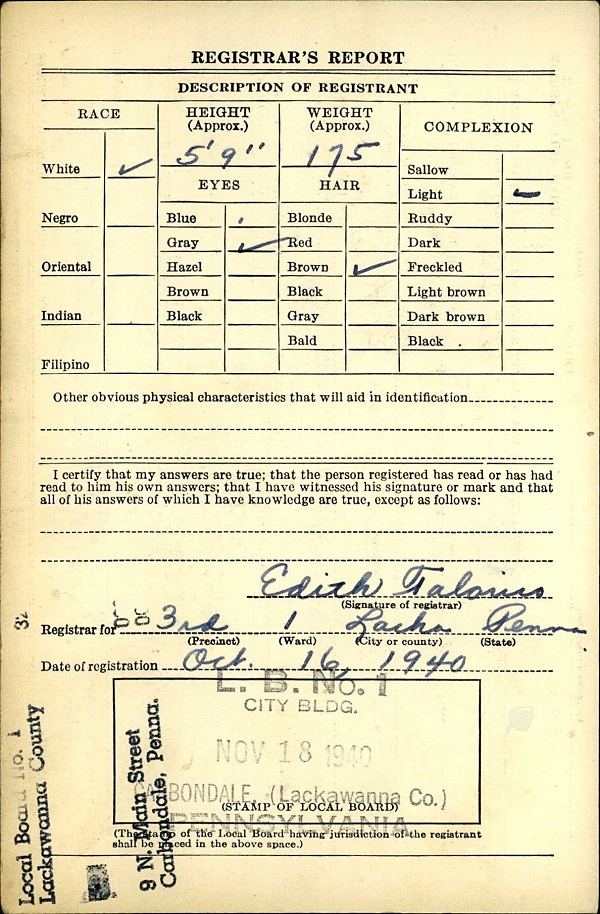 REGISTRAR'S REPORT
DESCRIPTION OF REGISTRANT
RACE
HEIGHT (Approx.)
WEIGHT (Approx.)
COMPLEXION
5' 9"
175
White ✓
Sallow
EYES
HAIR
Light –
Negro
Blue
Blonde
Ruddy
Gray ✓
Red
Dark
Oriental
Hazel
Brown ✓
Freckled
Brown
Black
Light brown
Indian
Black
Gray
Dark brown
Bald
Black
Filipino
Other obvious physical characteristics that will aid in identification
I certify that my answers are true; that the person registered has read or has had
read to him his own answers; that I have witnessed his signature or mark and that
all of his answers of which I have knowledge are true, except as follows:
Edith
(Signature of registrar)
Registrar for 3rd 1 Lacka Penna
(Precinct) (Ward) (City or county) (State)
Date of registration Oct. 16, 1940
L. B. No. 1
CITY BLDG.
NOV 18 1940
CARBONDALE, (Lackawanna Co.)
(STAMP OF LOCAL BOARD)
PENNSYLVANIA
(The stamp of the Local Board having jurisdiction of the registrant
shall be placed in the above space.)
32
Local Board No. 1
Lackawanna County
9 N. Main Street
Carbondale, Penna.